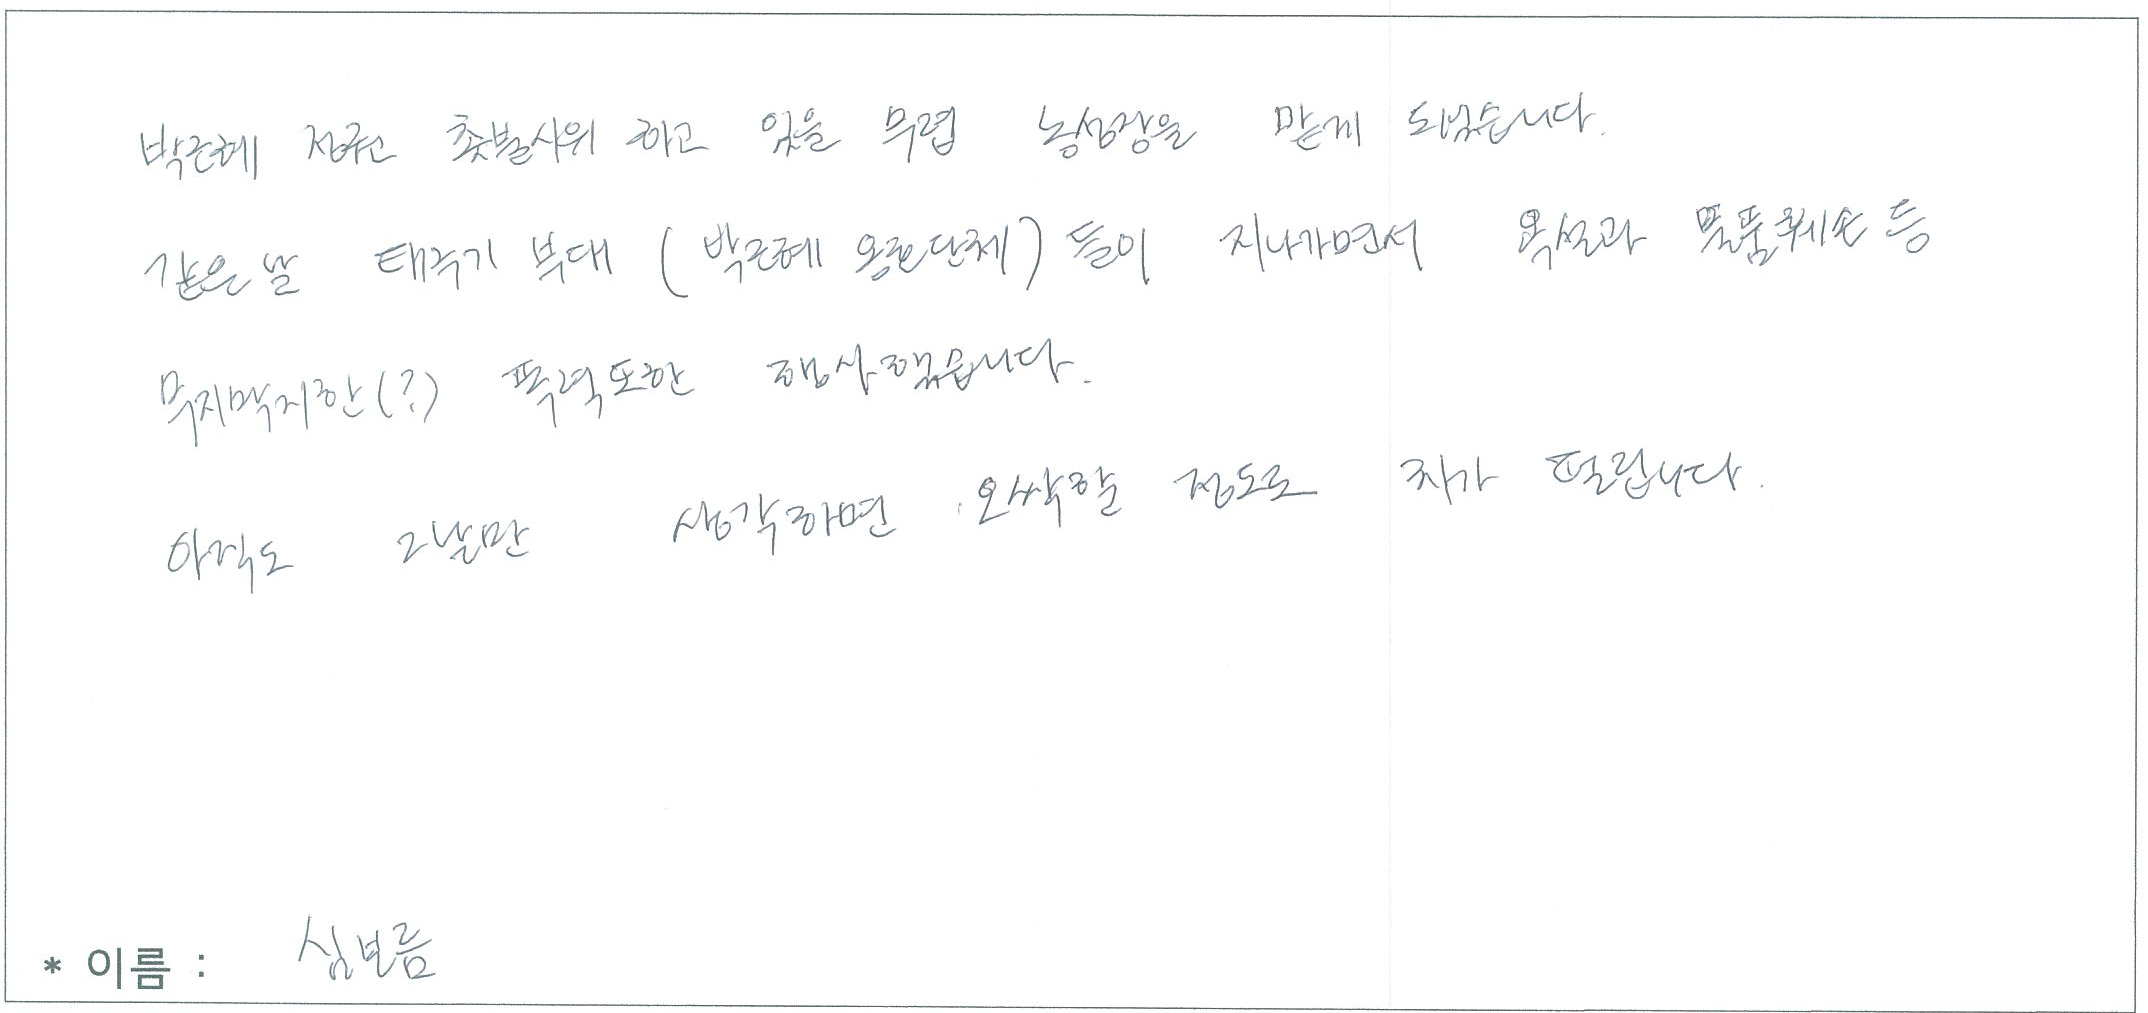 박근혜 정권 촛불시위 하고 있을 무렵 농성장을 맡게 되었습니다.
같은날 태극기 부대 (박근혜 옹호단체) 들이 지나가면서 욕설과 물품훼손 등
무지막지한(?) 폭력또한 행사했습니다.
아직도 그날만 생각하면 오싹할 정도로 치가 떨립니다.
* 이름 : 심보름